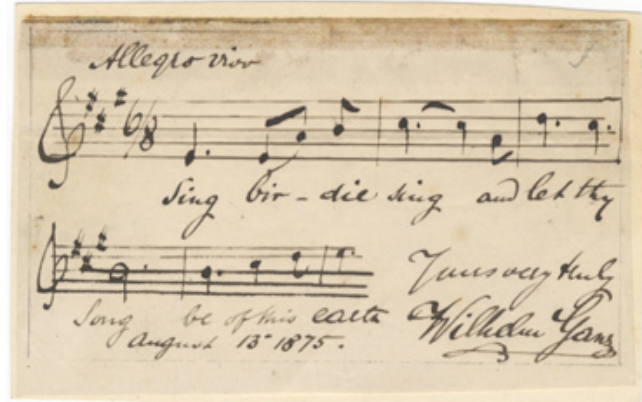 Allegro vivo
6/8
Sing bir - die sing and let thy
Song be of this earth
August 13 1875.
Yours very truly
Wilhelm Ganz